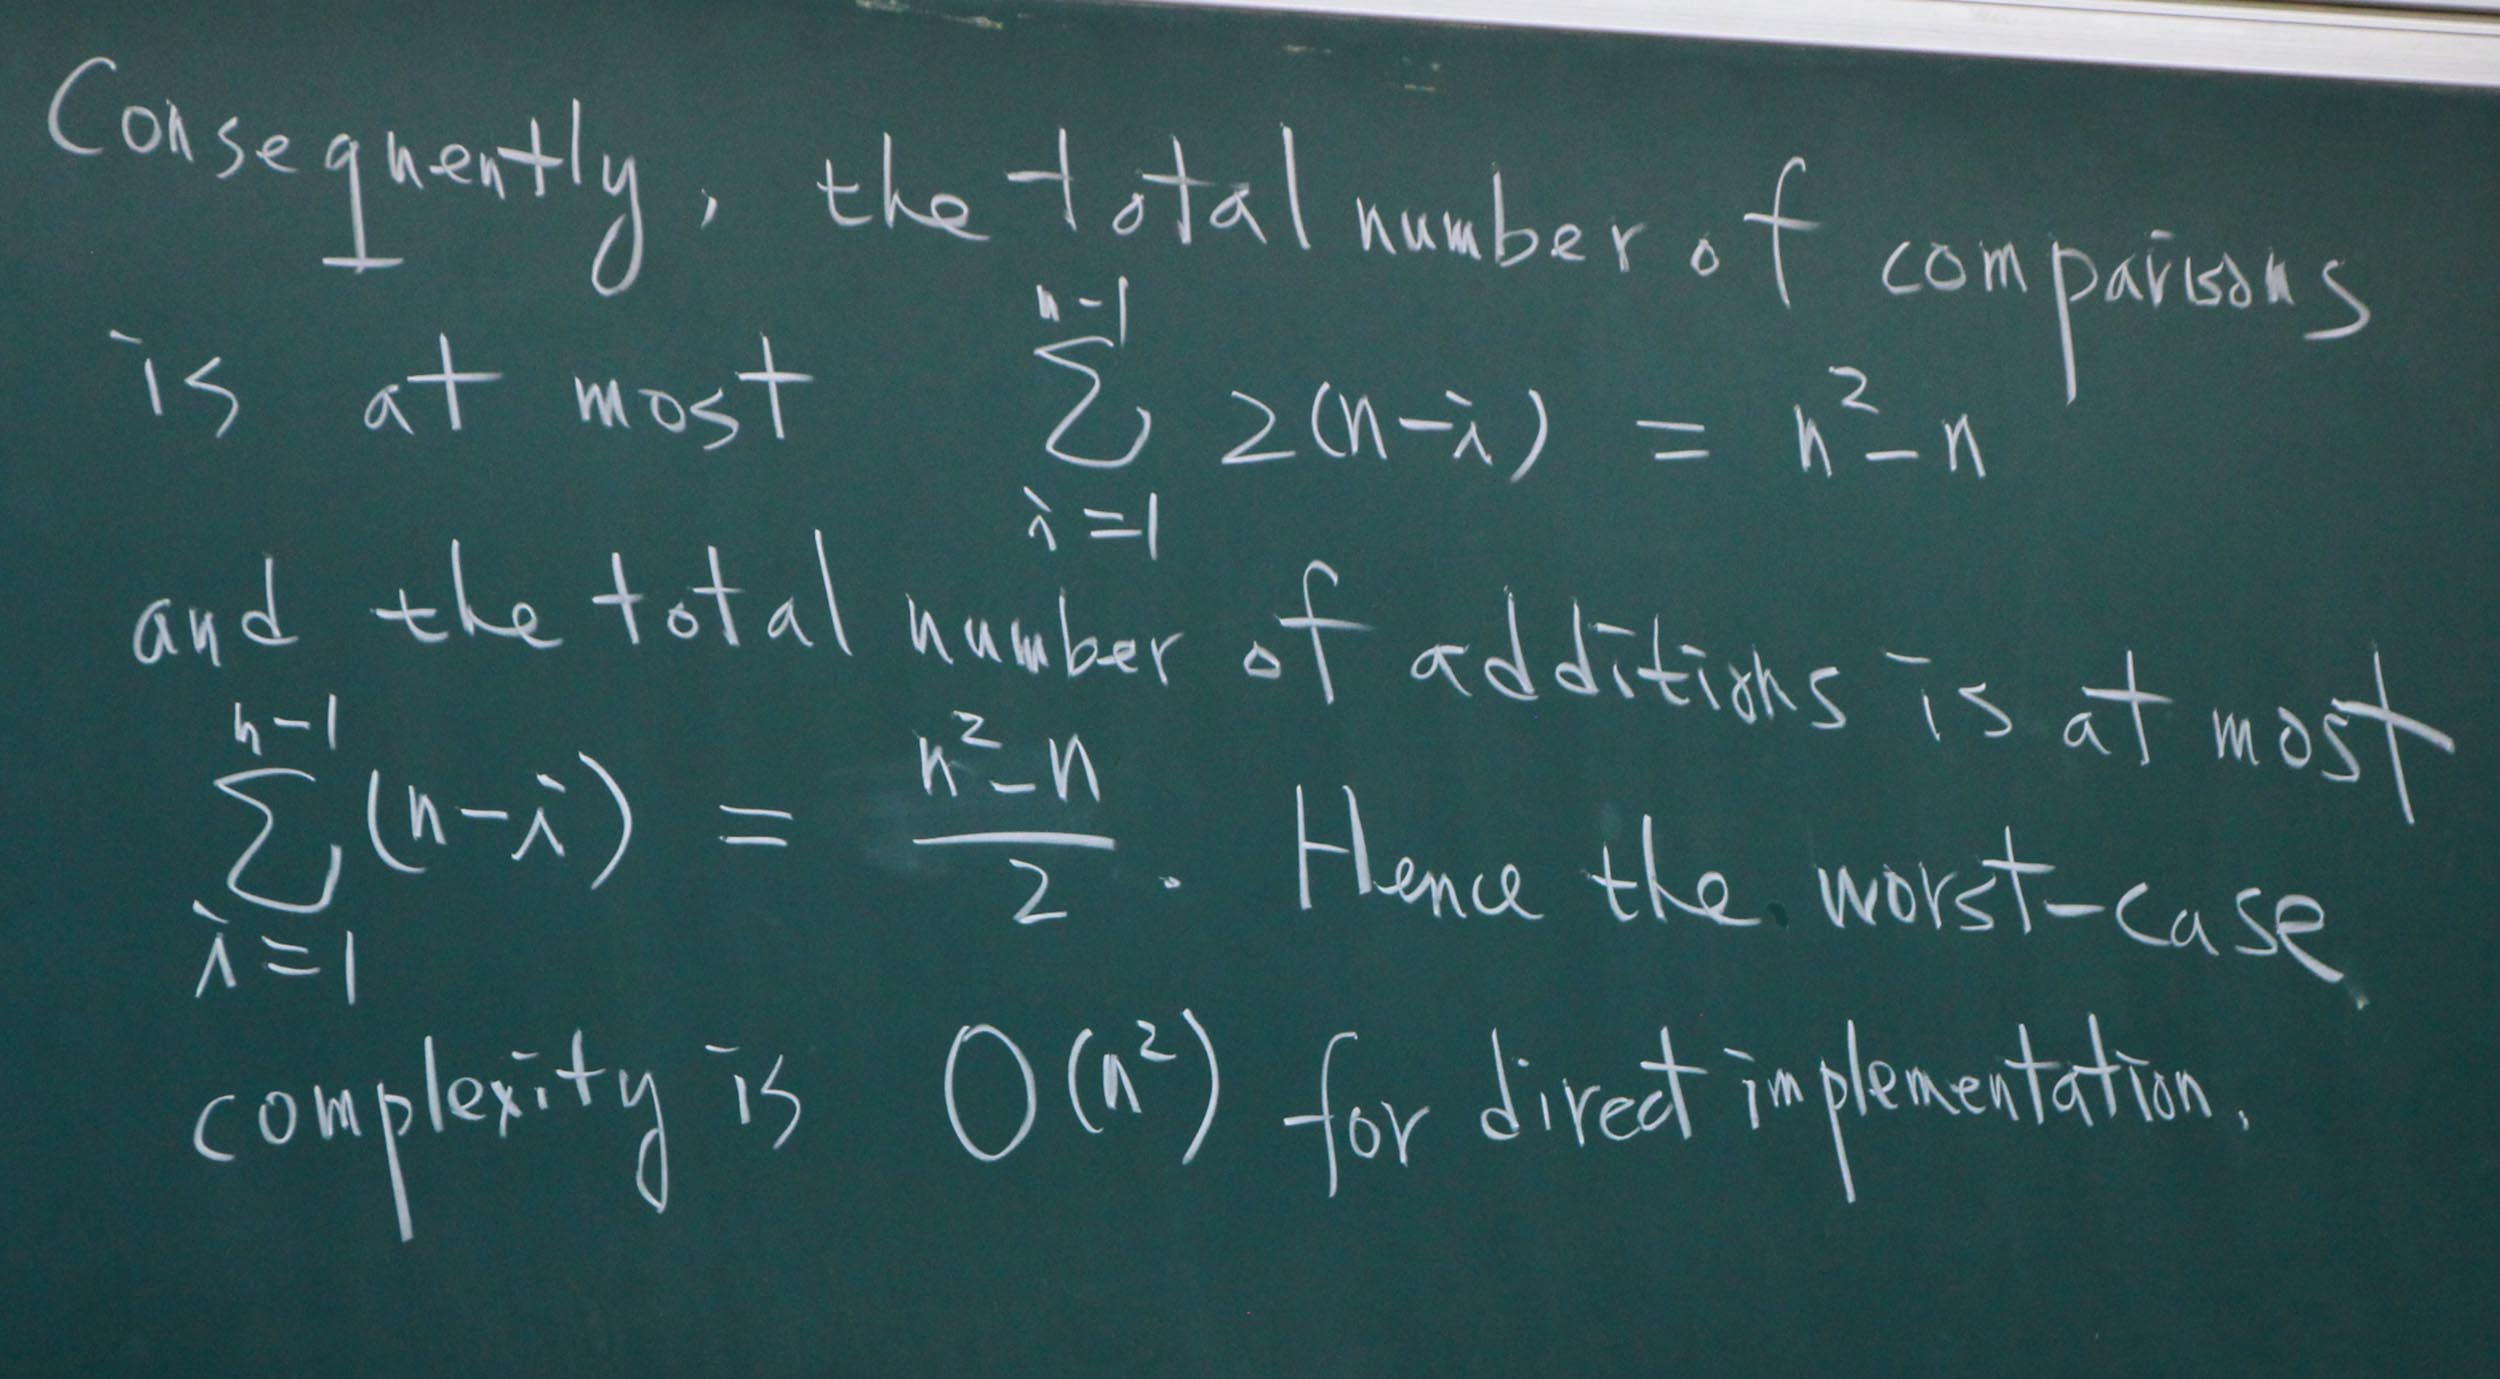 Consequently, the total number of comparisons
is at most $\sum_{i=1}^{n-1} 2(n-i) = n^2-n$
and the total number of additions is at most
$\sum_{i=1}^{n-1} (n-i) = \frac{n^2-n}{2}$. Hence the worst-case
complexity is $O(n^2)$ for direct implementation.